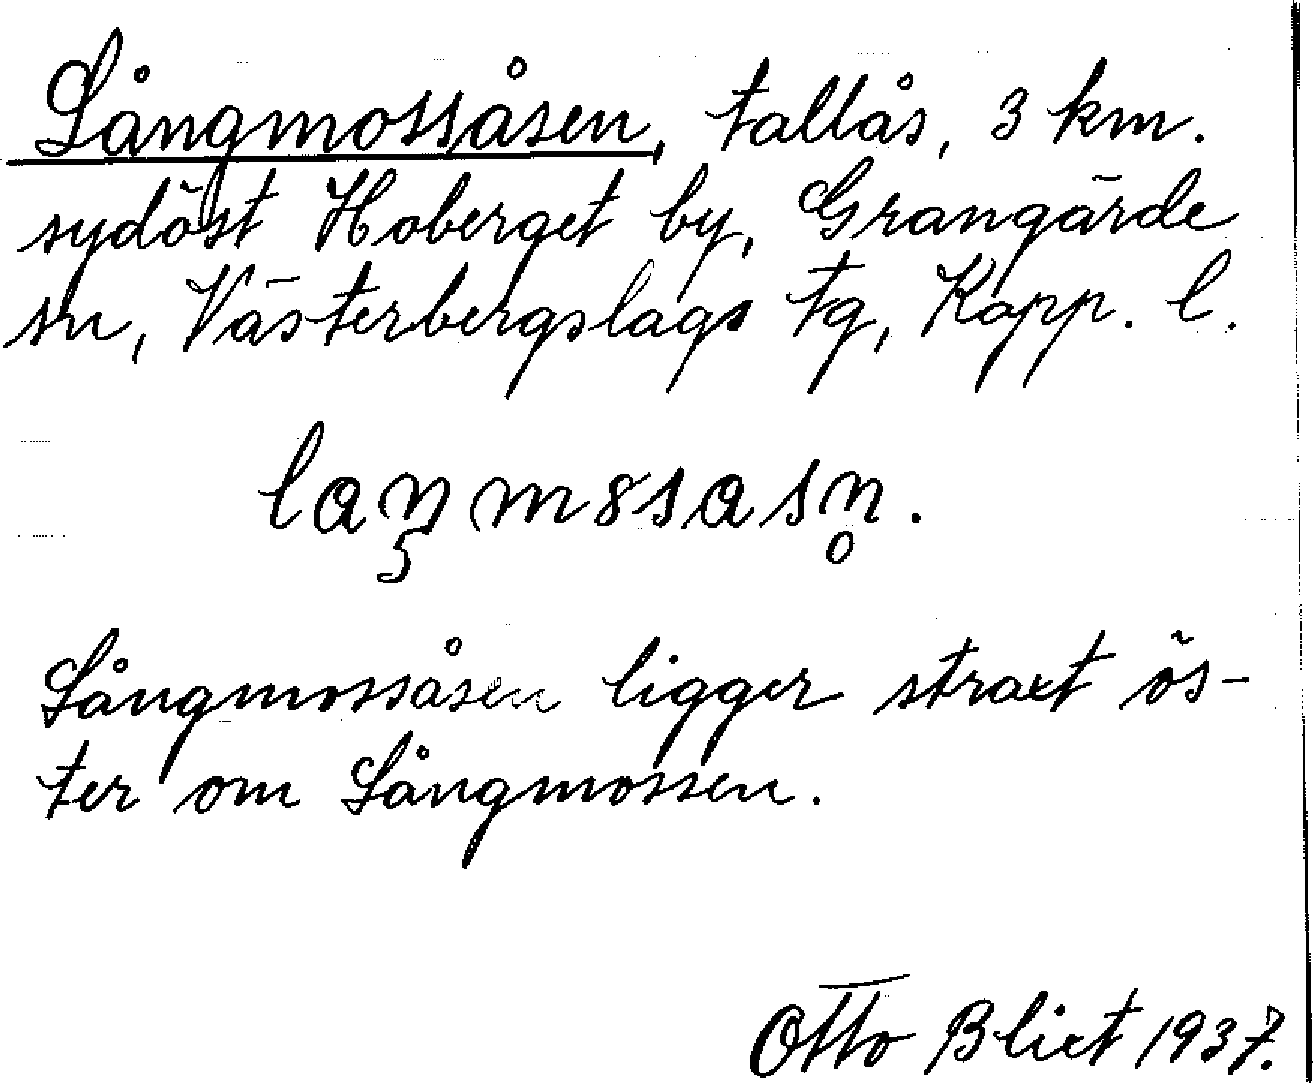 Långmossåsen, tallås, 3 km.
sydöst Hoberget by, Grangärde
sn, Västerbergslags tg, Kopp. l.
laŋmssasn̥.
Långmossåsen ligger straxt ös-
ter om Långmossen.
Otto Blixt 1937.